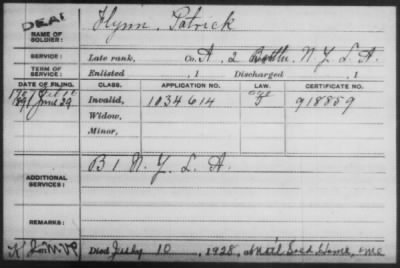 DEAF
Flynn, Patrick
NAME OF SOLDIER:
SERVICE: Late rank, Co. A, 2 Battn. N.Y. L.A.
TERM OF SERVICE: Enlisted , 1 Discharged , 1
DATE OF FILING. CLASS. APPLICATION NO. LAW. CERTIFICATE NO.
1891 June 29 Invalid, 1034614 918859
Widow,
Minor,
ADDITIONAL SERVICES: B 1 N.Y. L.A.
REMARKS:
Died July 10, 1928, at Natl Sold Home, Me